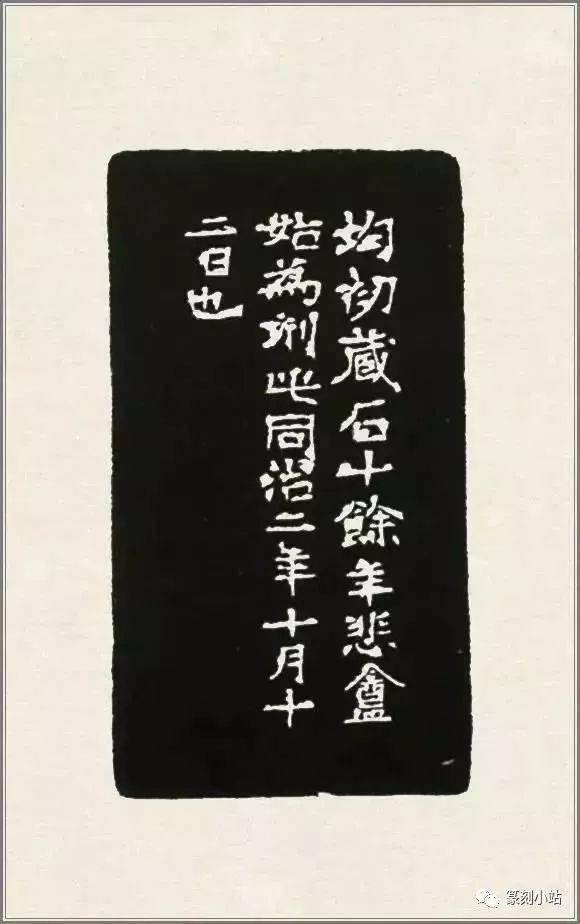 均初藏石十餘年悲盦
始為刊此同治二年十月十
二日也
篆刻小站